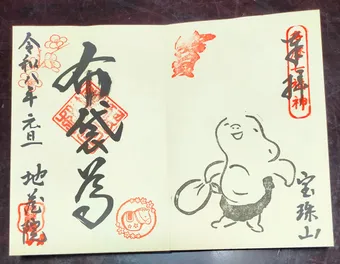 奉拝
宝珠山
布袋尊
令和八年元旦
地蔵院